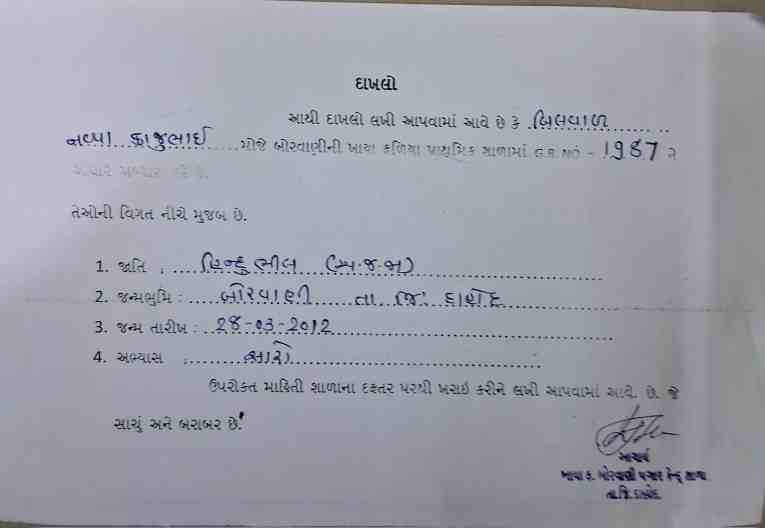 દાખલો
આથી દાખલો લખી આપવામાં આવે છે કે બિલવાળ
નવ્યા રાજુભાઈ મોજે બોરવાણીની ખાયા ફળિયા પ્રાથમિક શાળામાં G.R NO - 1987 ને
તેઓની વિગત નીચે મુજબ છે.
1. જાતિ : હિન્દુ ભીલ (અ.જ.જા)
2. જન્મભુમિ : બોરવાણી તા જિ દાહોદ
3. જન્મ તારીખ : 28-03-2012
4. અભ્યાસ :
ઉપરોકત માહિતી શાળાના દફતર પરથી ખરાઇ કરીને લખી આપવામાં આવે છે. જે
સાચું અને બરાબર છે.
આચાર્ય
ખાયા ફ. બોરવાણી પગાર કેન્દ્ર શાળા
તા.જિ.દાહોદ